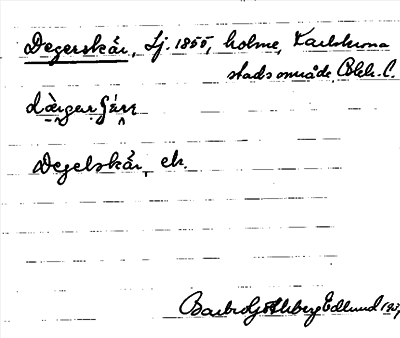 Degerskär, Sj. 1855, holme, Karlskrona
stadsområde, Blek. C.
Degelskär, ek.
Barbro Göthberg Edlund